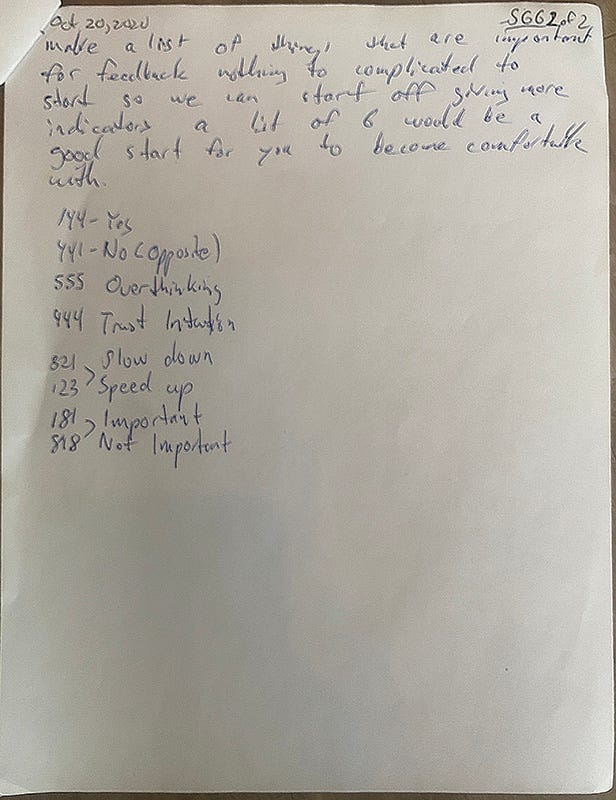 Oct 20, 2020
SGG 2 of 2
make a list of things that are important
for feedback nothing to complicated to
start so we can start off giving more
indicators a list of 6 would be a
good start for you to become comfortable
with.
144 - Yes
441 - No (opposite)
555 Overthinking
444 Trust Intuition
321 > Slow down
123 > Speed up
181 > Important
818 > Not Important